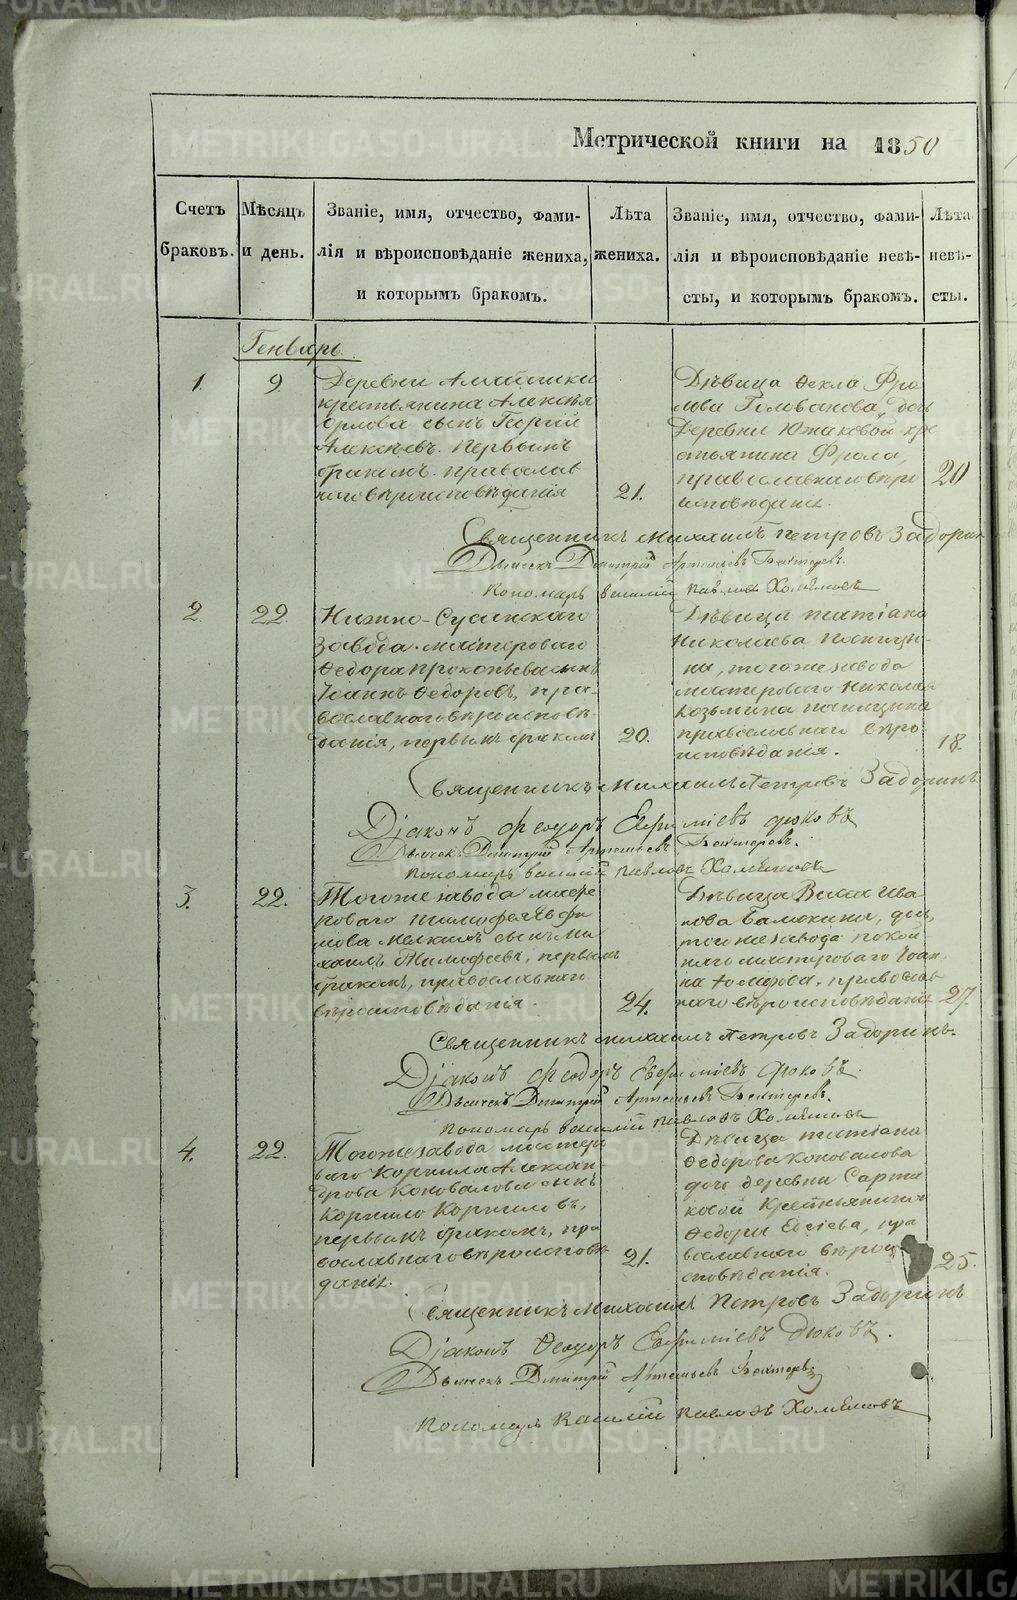 Метрической книги на 1850
Счетъ браковъ.
Мѣсяцъ и день.
Званіе, имя, отчество, фами-
лія и вѣроисповѣданіе жениха,
и которымъ бракомъ.
Лѣта жениха.
Званіе, имя, отчество, фами-
лія и вѣроисповѣданіе невѣ-
сты, и которымъ бракомъ.
Лѣта невѣ-
сты.
Генварь
1.
9
Деревни
крестьянина Алексѣя
Орлова сынъ Георгій
Алексѣевъ. Первымъ
бракомъ. православ
наго вѣроисповѣданія
21.
Дѣвица Фекла Фро
лова Голованова, дочь
деревни Южаковой кре
стьянина Фрола,
православнаго вѣро
исповѣданія.
20
Священникъ Михаилъ Петровъ Задорин
Дьячекъ Дмитрій Артемьевъ Бахтеревъ.
Пономарь Василій Павловъ Хомяковъ
2.
22.
Нижно-Сусанскаго
завода мастероваго
Ѳедора Прокопьева сынъ
Іоаннъ Ѳедоровъ, пра-
вославнаго вѣроисповѣ-
данія, первымъ бракомъ
20.
Дѣвица Татіана
Николаева
на, тогоже завода
мастероваго Николая
Козьмина
православнаго вѣро
исповѣданія.
18.
Священникъ Михаилъ Петровъ Задоринъ
Діаконъ Феодоръ Евфиміевъ Дюковъ
Дьячекъ Дмитрій Артемьевъ Бахтеревъ.
Пономарь Василій Павловъ Хомяковъ
3.
22.
Тогоже завода масте
роваго Тимофея Ефи
мова сынъ Ми
хаилъ Тимофеевъ, первымъ
бракомъ, православнаго
вѣроисповѣданія.
24.
Дѣвица Ива
нова дочь,
тогоже завода покой
наго мастероваго Іоан
на православ
наго вѣроисповѣданія
27.
Священникъ Михаилъ Петровъ Задоринъ.
Діаконъ Феодоръ Евфиміевъ Дюковъ.
Дьячекъ Дмитрій Артемьевъ Бахтеревъ.
Пономарь Василій Павловъ Хомяковъ
4.
22.
Тогоже завода мастеро
ваго Корнила Алексан-
дрова Коновалова сынъ
Корнило Корниловъ,
первымъ бракомъ, пра
вославнаго вѣроисповѣ
данія.
21.
Дѣвица Татіана
Ѳедорова Коновалова
дочь деревни
ковой крестьянина
Ѳедора пра
вославнаго вѣрои
сповѣданія.
25.
Священникъ Михаилъ Петровъ Задоринъ
Діаконъ Ѳеодоръ Евфиміевъ Дюковъ.
Дьячекъ Дмитрій Артемьевъ Бахтеревъ
Пономарь Василій Павловъ Хомяковъ
METRIKI.GASO-URAL.RU